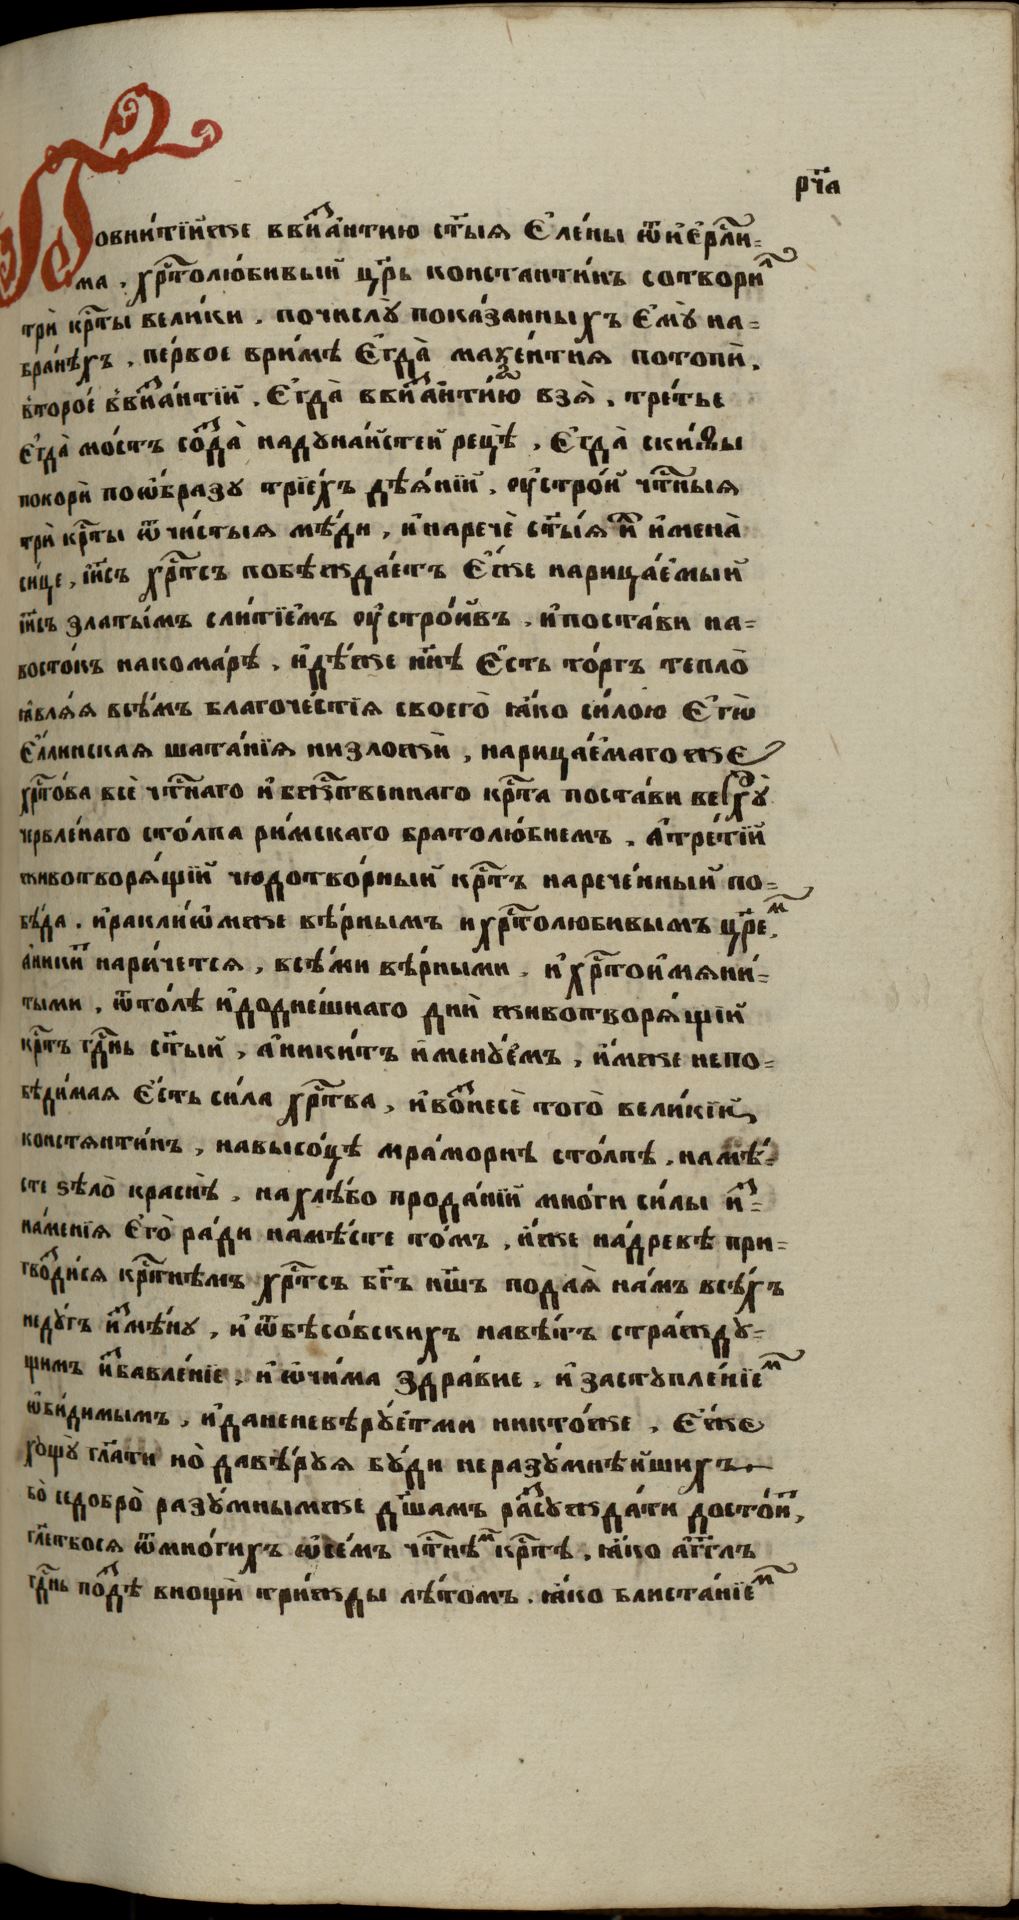 рч҃а
Повни́тїйже ввиза́нтию ст҃ыя Є҆ле́ны ѿи҆є҆рⷭ҇ли=
ма, хрⷭ҇толю́бивый цр҃ь константи́нъ сотвориⷧ҇
трѝ крⷭ҇ты вели́ки, почислꙋ̀ пока́занныхъ Є҆мꙋ̀ на=
бра́нѣхъ, пе́рвое ври́мѣ Є҆гда̀ маѯе́нтия потопѝ,
второ́е в̾виза́нтїй, Є҆гда̀ ввиза́нти́ю взя̀, тре́тье
Є҆гда̀ мо́стъ созда̀ надꙋна́йстей рецѣ̀, Є҆гда̀ ски́ѳы
покорѝ поѡ҆́бразꙋ трїе́хъ дѣя́нїй, ᲂу҆стро́й чтⷭ҇ныя
трѝ крⷭ҇ты ѿчи́стыя мѣ́ди, и҆наречѐ ст҃ы́я и҆̀ и҆мена̀
си́це, і҆и҃съ хрⷭ҇то́съ побѣжда́етъ Є҆́же нарица́е́мый
і҆и҃съ златы́мъ сли́тїемъ ᲂу҆стро́ивъ, и҆поста́ви на=
восто́къ накома́рѣ, и҆дѣ́же нн҃ѣ Є҆́сть то́ргъ тепло̀
ꙗ҆вля́я всѣ́мъ благоче́стїя своего̀ ꙗ҆́ко си́лою Є҆гѡ̀
Є҆́ллинская шата́нїя низложѝ, нарица́емаго же
хрⷭ҇то́ва всѐ чтⷭ҇наго и҆ бж҃твеннаго крⷭ҇та поста́ви верхꙋ̀
червле́наго сто́лпа ри́мскаго братолю́биемъ, а҆тре́тїй
животворя́щїй чюдотво́рный крⷭ҇тъ нарече́нный по=
бѣ́да, и҆ракли́ѡ҆мже вѣ́рнымъ и хрⷭ҇толюбивымъ цр҃еⷨ҇,
а҆ники́тⷮ нари́четcя, всѣ́ми вѣ́рными, и҆ хрⷭ҇тои҆мяни́=
тыми, ѿто́лѣ и҆додне́шнаго днѝ животворя́щїй
крⷭ҇тъ гдⷭ҇нь ст҃ый, а҆ники́тъ и҆менꙋ́емъ, и҆́мже непо=
бѣди́мая Є҆́сть си́ла хрⷭ҇тва, и҆вознесѐ того̀ вели́кїй
констянти́нъ, навысо́цѣ мра́морнѣ сто́лпѣ, на мѣ́=
стѣ ѕѣло̀ краснѣ, на хлѣ́бо прода́нїй мно́ги си́лы и҆з=
на́менїя Є҆го̀ ра́ди намѣ́сте то́мъ, и҆́же на́древѣ при=
гвозди́ся крⷭ҇тнѣмъ хрⷭ҇тсъ бг҃ъ нш҃ъ подая̀ на́мъ всѣ́хъ
недꙋ́гъ и҆змѣ́нꙋ, и҆ ѿбѣсо́вскихъ навѣ́тъ стра́ждꙋ=
щимъ и҆збавле́нїе, и҆ ѡ҆чи́ма здра́вие, и҆ застꙋпле́нїеⷨ҇
ѡ҆би́димымъ, и҆даненевѣ́рꙋетми никто́же, Є҆́же
хощꙋ̀ гл҃ати но̀ давѣ́рꙋя бꙋ́ди неразꙋ́мнѣйшихъ
бо̀ седобро̀ разꙋ́мнымже дш҃амъ разсꙋжда́ти досто́итⷮ,
гл҃етбося ѿмно́гихъ ѡ҆се́мъ чтⷭ҇нѣⷨ҇ крⷭ҇тѣ, ꙗ҆́ко а҆гг҃лъ
гдⷭ҇нь по́здѣ внощѝ три́жды лѣ́томъ, ꙗ҆́ко блиста́нїеⷨ҇